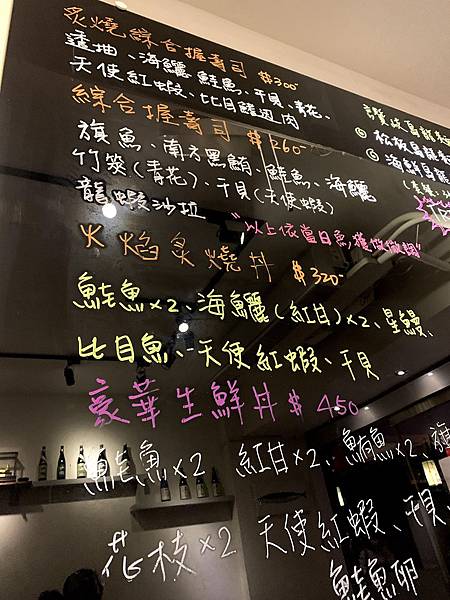 炙燒綜合握壽司 $300
透抽、海鱺、鮭魚、干貝、青花、
天使紅蝦、比目鰭邊肉
綜合握壽司 $260-
旗魚、南方黑鮪、鮭魚、海鱺
竹筴(青花)、干貝(天使蝦)
龍蝦沙拉
"以上依當日魚獲做微調"
火焰炙燒丼 $320-
鮭魚x2、海鱺(紅甘)x2、星鰻、
比目魚、天使紅蝦、干貝
豪華生鮮丼 $450
鮭魚x2 紅甘x2、鮪魚x2、旗
花枝x2 天使紅蝦、干貝、
鮭魚卵
讚岐烏龍麵
松阪烏龍
海鮮烏龍